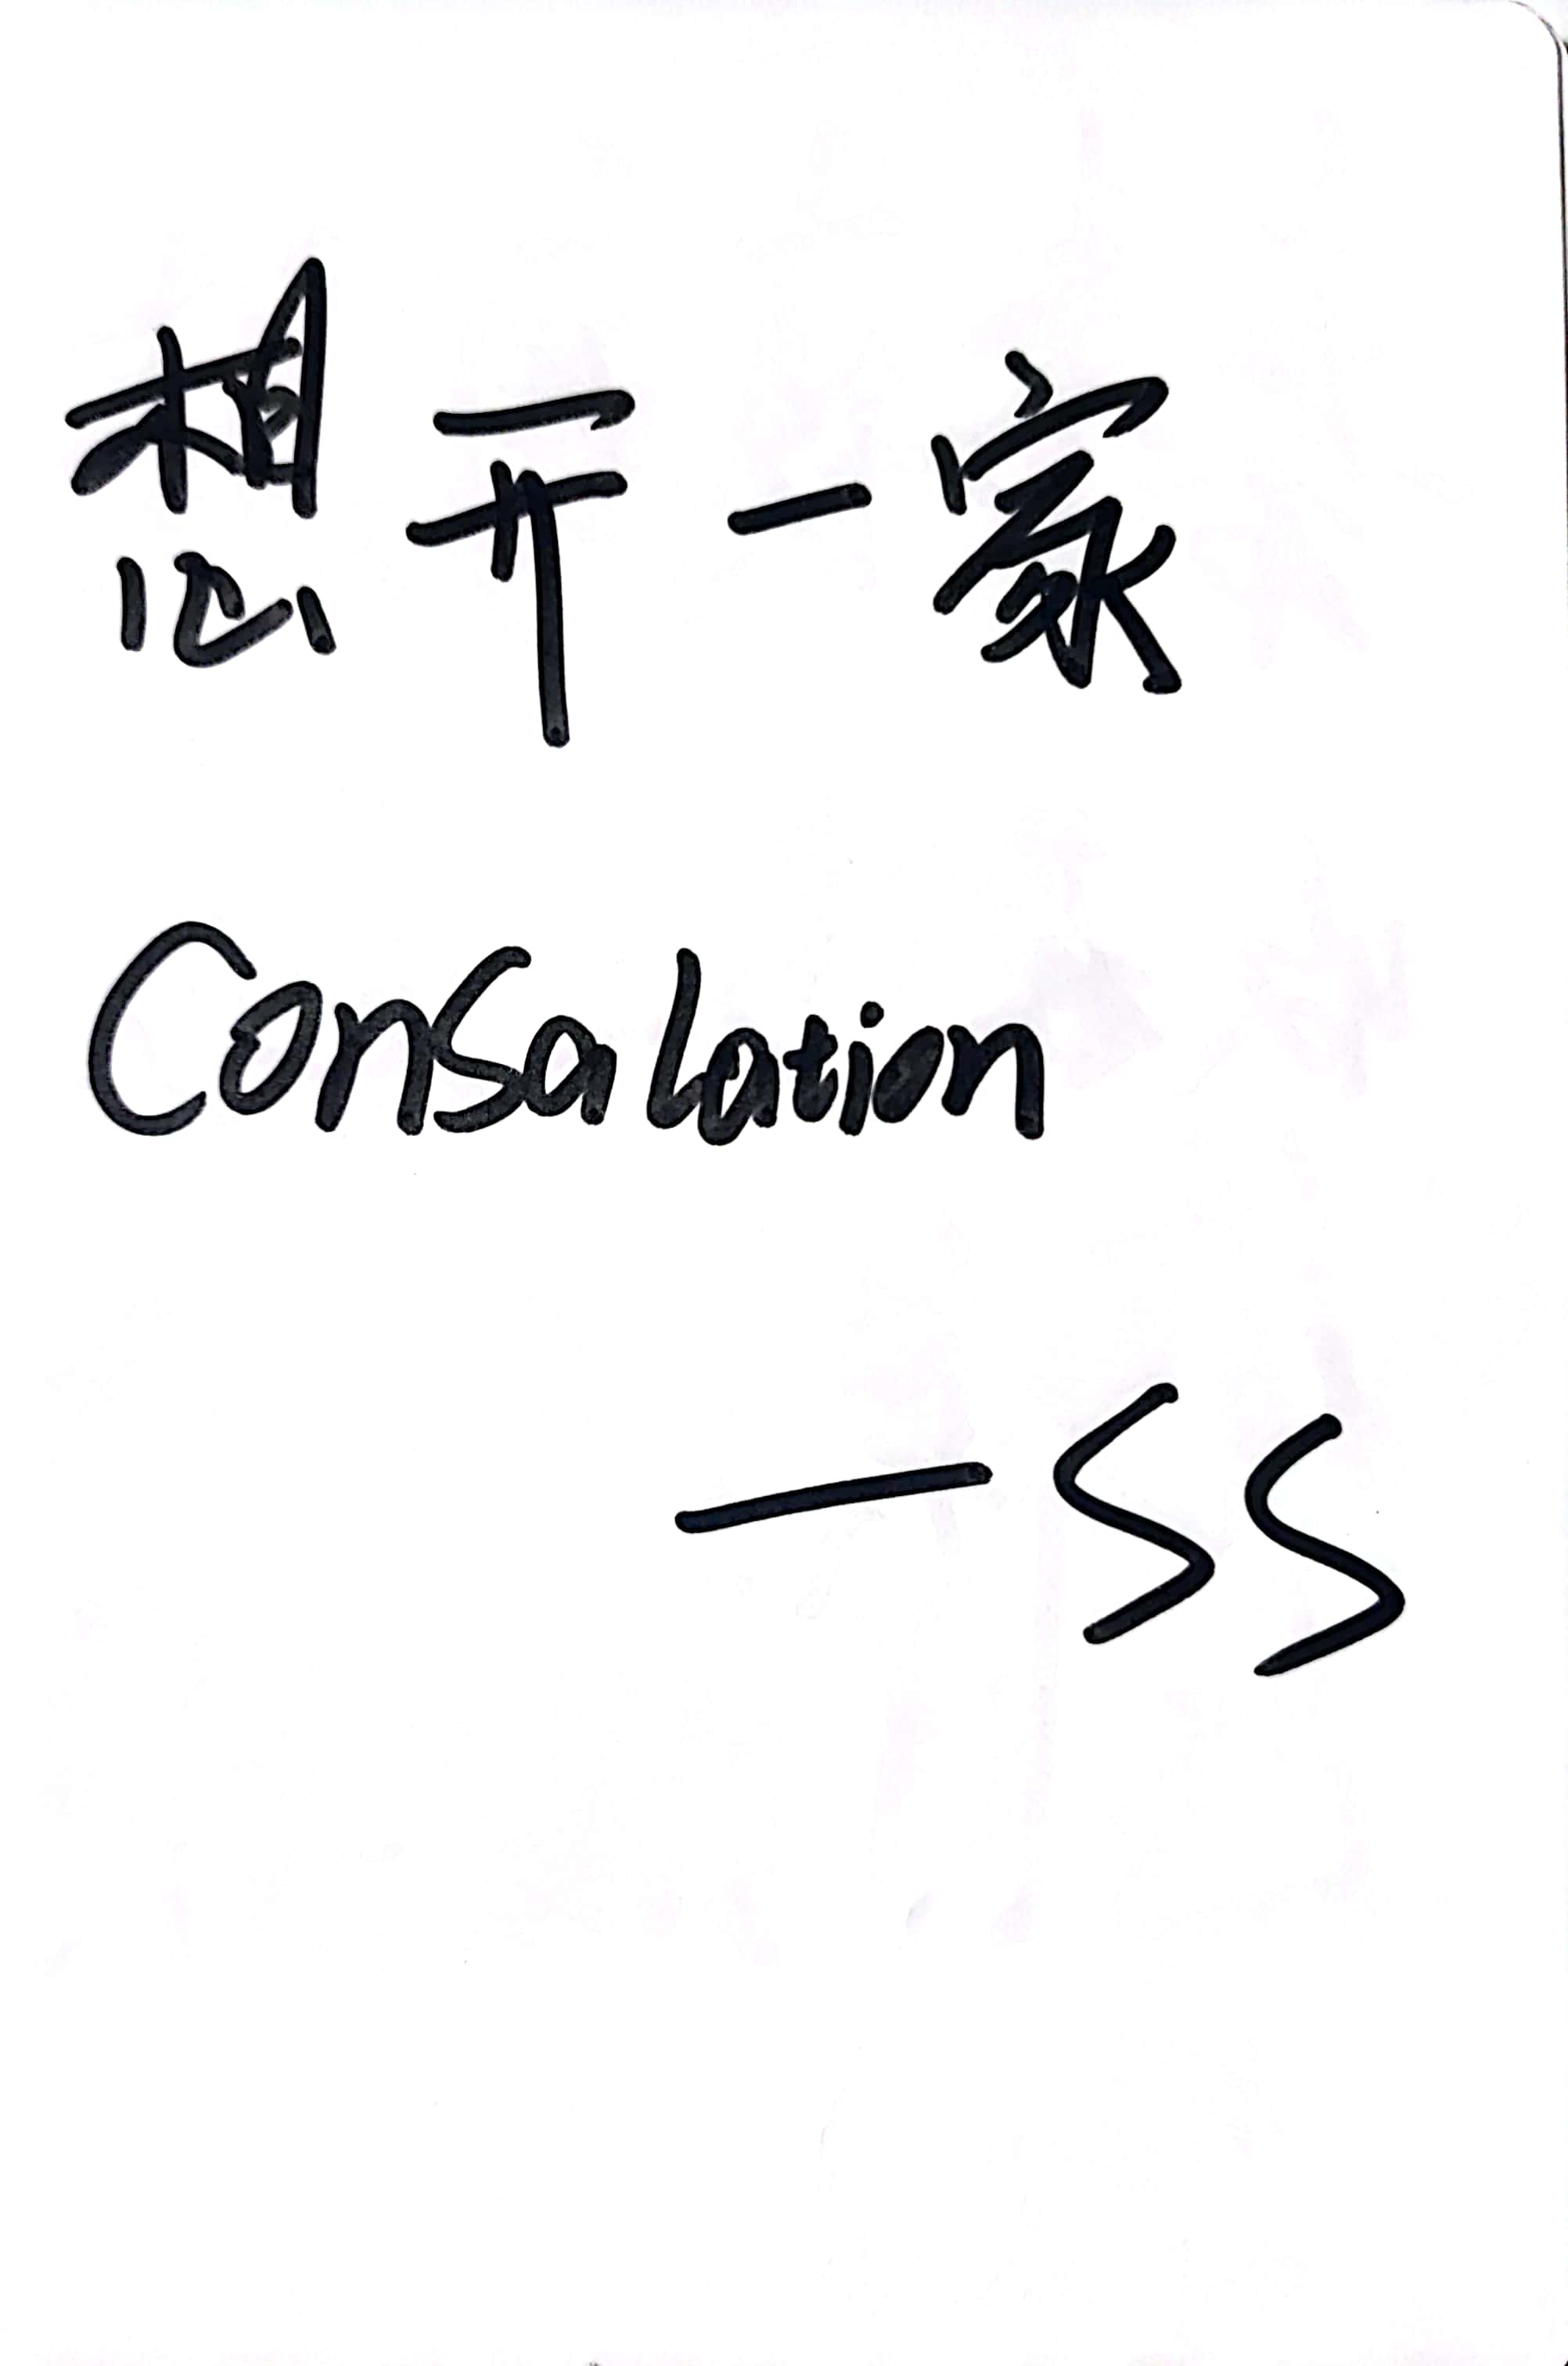 想开一家
Consalation
—SS